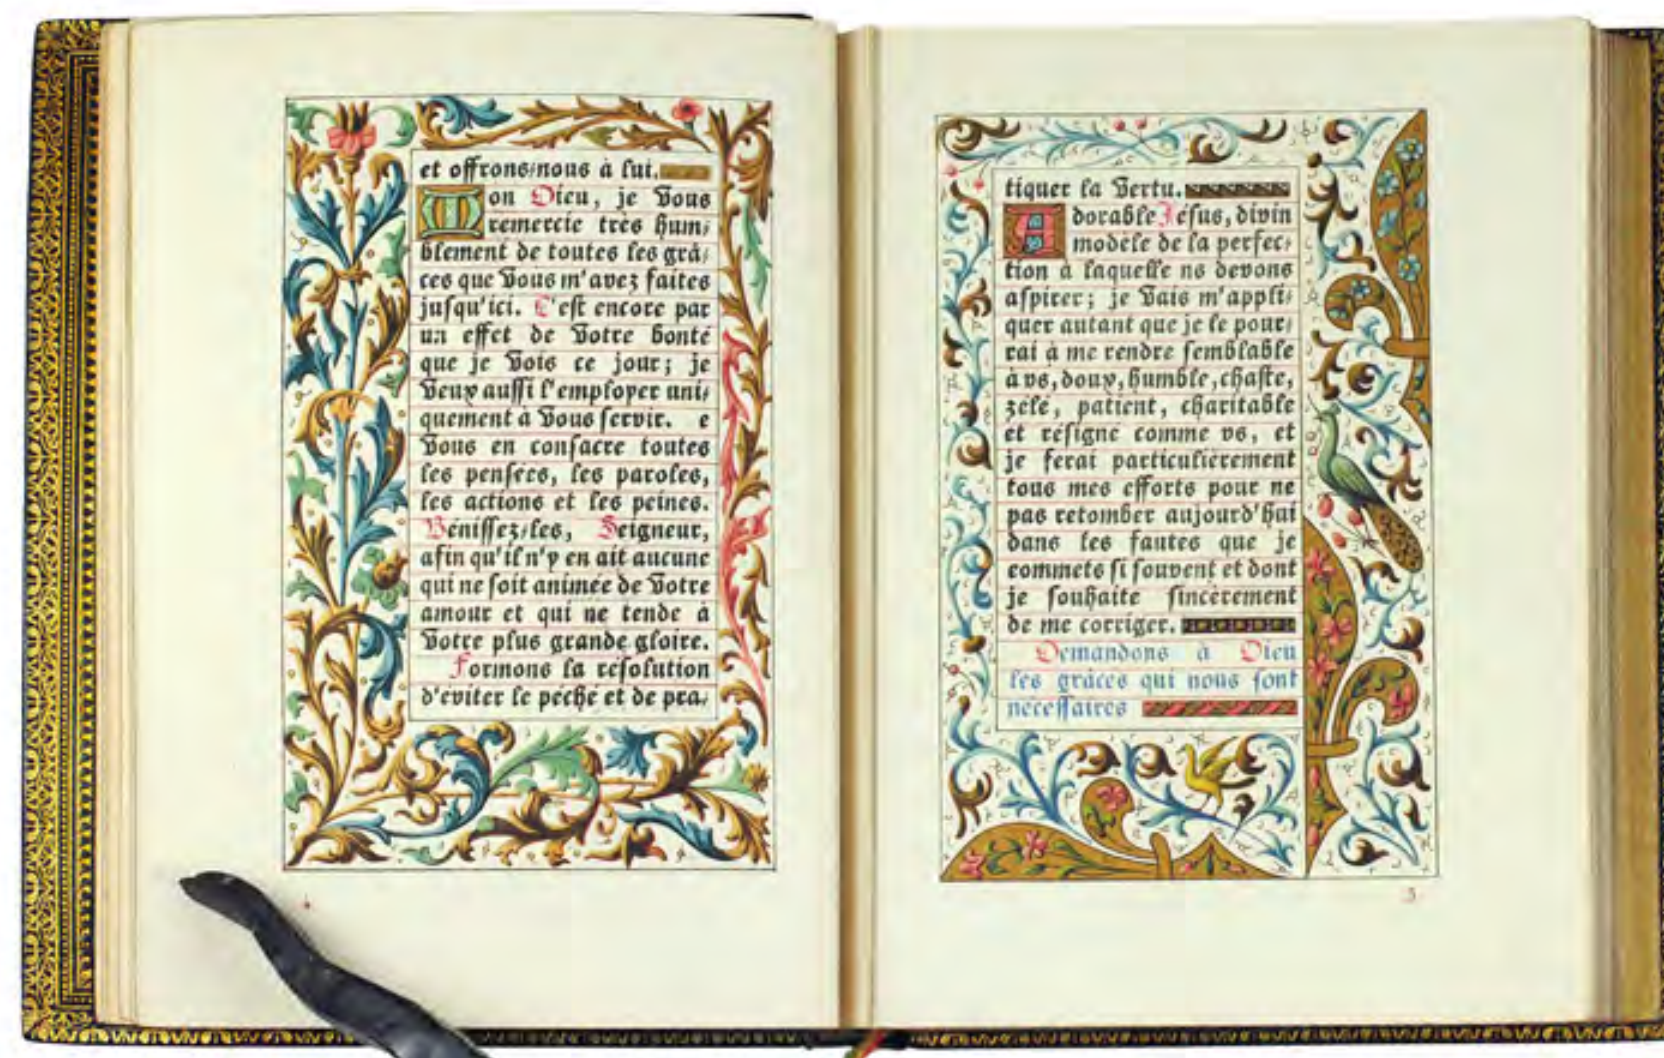 et offrons-nous à lui.
Mon Dieu, je Vous
remercie très hum-
blement de toutes les grâ-
ces que Vous m'avez faites
jusqu'ici. C'est encore par
un effet de Votre bonté
que je vois ce jour; je
veux aussi l'employer uni-
quement à Vous servir. e
Vous en consacre toutes
les pensées, les paroles,
les actions et les peines.
Bénissez-les, Seigneur,
afin qu'il n'y en ait aucune
qui ne soit animée de Votre
amour et qui ne tende à
Votre plus grande gloire.
Formons la résolution
d'éviter le péché et de pra-
tiquer la Vertu.
Adorable Jésus, divin
modèle de la perfec-
tion à laquelle ns devons
aspirer; je vais m'appli-
quer autant que je le pour-
rai à me rendre semblable
à vs, doux, humble, chaste,
zélé, patient, charitable
et résigné comme vs, et
je ferai particulièrement
tous mes efforts pour ne
pas retomber aujourd'hui
dans les fautes que je
commets si souvent et dont
je souhaite sincèrement
de me corriger.
Demandons à Dieu
les grâces qui nous sont
nécessaires